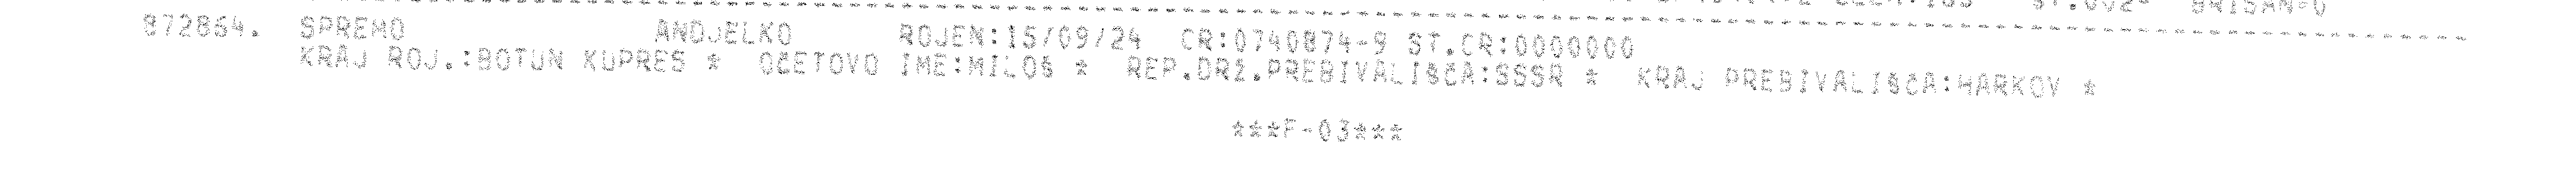 872864. SPREMO ANDJELKO ROJEN:15/09/24 CR:0740874-9 ST.CR:0000000
KRAJ ROJ.:BOTUN KUPRES * OČETOVO IME:MILOŠ * REP.DRŽ.PREBIVALIŠČA:SSSR * KRAJ PREBIVALIŠČA:HARKOV *
***F-03***